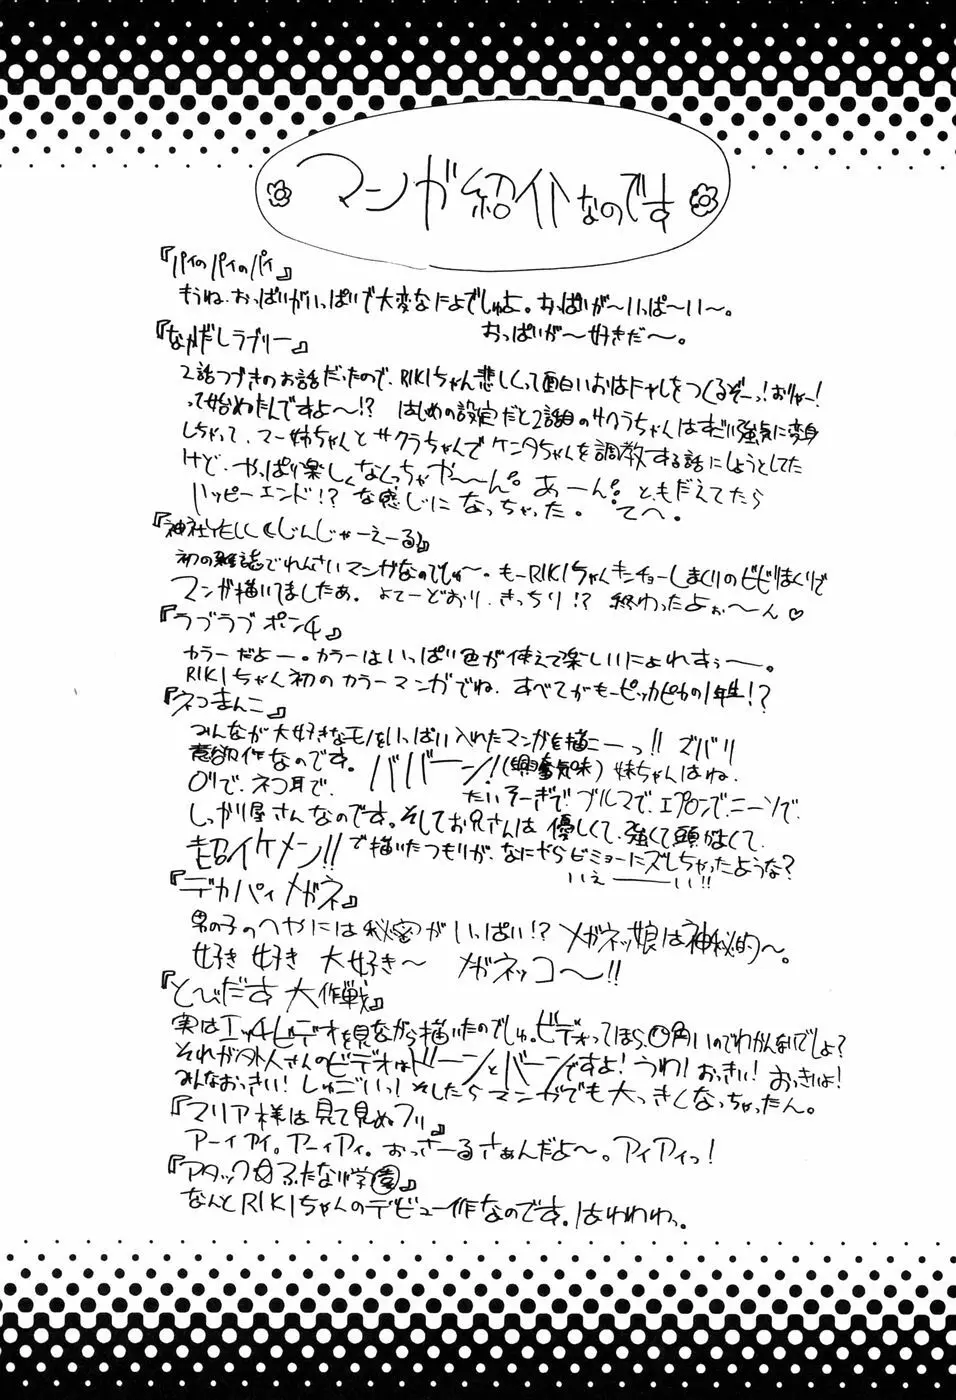 マンガ紹介なのです
『パイのパイのパイ』
もうね、おっぱいがいっぱいで大変なによでしゅよ。おっぱいが〜いっぱ〜い〜。
おっぱいが〜好きだ〜。
『なかだしラブリー』
2話つづきのお話だったので、RIKIちゃん悲しくって面白いおはなしをつくるぞーっ!おりゃー!
って始めたんですよ〜!? はじめの設定だと2話目のサクラちゃんはすごい強気に変身
しちゃって、マー姉ちゃんとサクラちゃんでケンタちゃんを調教する話にしようとしてた
けど、やっぱり楽しくなくっちゃや〜〜ん。あーん。ともだえてたら
ハッピーエンド!? な感じになっちゃった。てへ。
『神社ILL(じんじゃーえーる)』
初の雑誌でれんさいマンガなのでしゅ〜。もーRIKIちゃんキンチョーしまくりのビビりまくりで
マンガ描いてましたぁ。よてーどおり、きっちり!? 終わったよぉ〜ん♡
『ラブラブポンチ』
カラーだよー。カラーはいっぱい色が使えて楽しいにょれすぅー。
RIKIちゃん初のカラーマンガでね、すべてがもーピッカピカの1年生!?
『ネコまんこ』
みんなが大好きなモノをいっぱい入れたマンガを描こーっ!! ズバリ
意欲作なのです。ババーン!(興奮気味) 妹ちゃんはね、
ロリで、ネコ耳で、たいそーぎで、ブルマで、エプロンで、ニーソで、
しっかり屋さんなのです。そしてお兄さんは優しくて、強くて頭がよくて、
超イケメン!!で描いたつもりが、なにやらビミョーにズレちゃったような?
いぇーーい!!
『デカパイメガネ』
男の子のへやには秘密がいっぱい!? メガネッ娘は神秘的〜。
好き 好き 大好き〜 メガネッコ〜!!
『とびだす大作戦』
実はエッチビデオを見ながら描いたのでしゅ。ビデオってほら、〇角いのでわかんないでしょ?
それが外人さんのビデオはドーンとバーンですよ! うわ! おっきい! おっきぃよ!
みんなおっきい! しゅごいっ! そしたらマンガでも大っきくなっちゃったん。
『マリア様は見て見ぬフリ』
アーイアイ。アーイアイ。おっさーるさぁんだよ〜。アイアイっ!
『アタック☆ふたなり学園』
なんとRIKIちゃんのデビュー作なのです。はわわわっ。